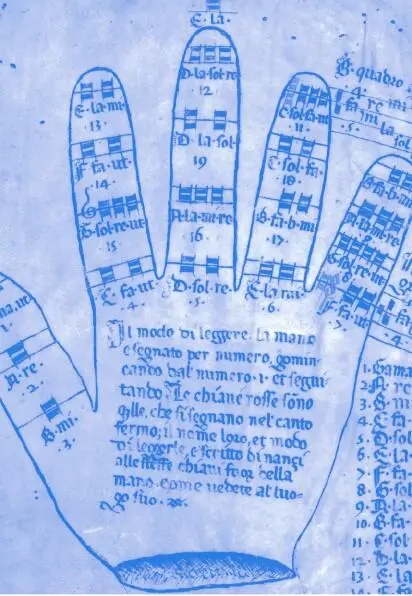 E·la·
D·la·sol·re
12
E·la·mi·
·13·
C·sol·fa·ut
·11·
D·la·sol·
19
F·fa·ut·
·14·
C·sol·fa·
·18·
G·sol·re·ut·
·15·
A·la·mi·re
·16·
B·fa·b·mi·
·17·
C·fa·ut·
·4·
D·sol·re·
·5·
E·la·mi·
·6·
·7·
ma·ut·
1·
A·re·
·2·
B·mi·
3·
B·quadro·
·4·
fa re mi
mi fa sol
·5·
Il modo di leggere la mano
e segnato per numero, comin
cando dal numero ·1· et segui
tando. Le chiavi rosse sono
qlle, che si segnano nel canto
fermo; il nome loro, et modo
di leggerle, e scritto di nanzi
alle stesse chiavi fuor della
mano come vedete al luo-
go suo.
1·Gama
2·A·re
3·B·mi
4·C·fa
5·D·sol
6·E·la
7·F·fa
8·G·sol
9·A·la
10·B·fa
11·C·sol
12·D·la
13·E·la